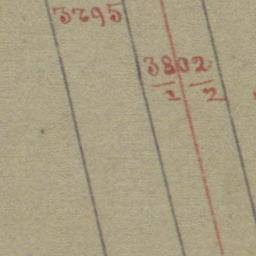 3795
3802
1 2